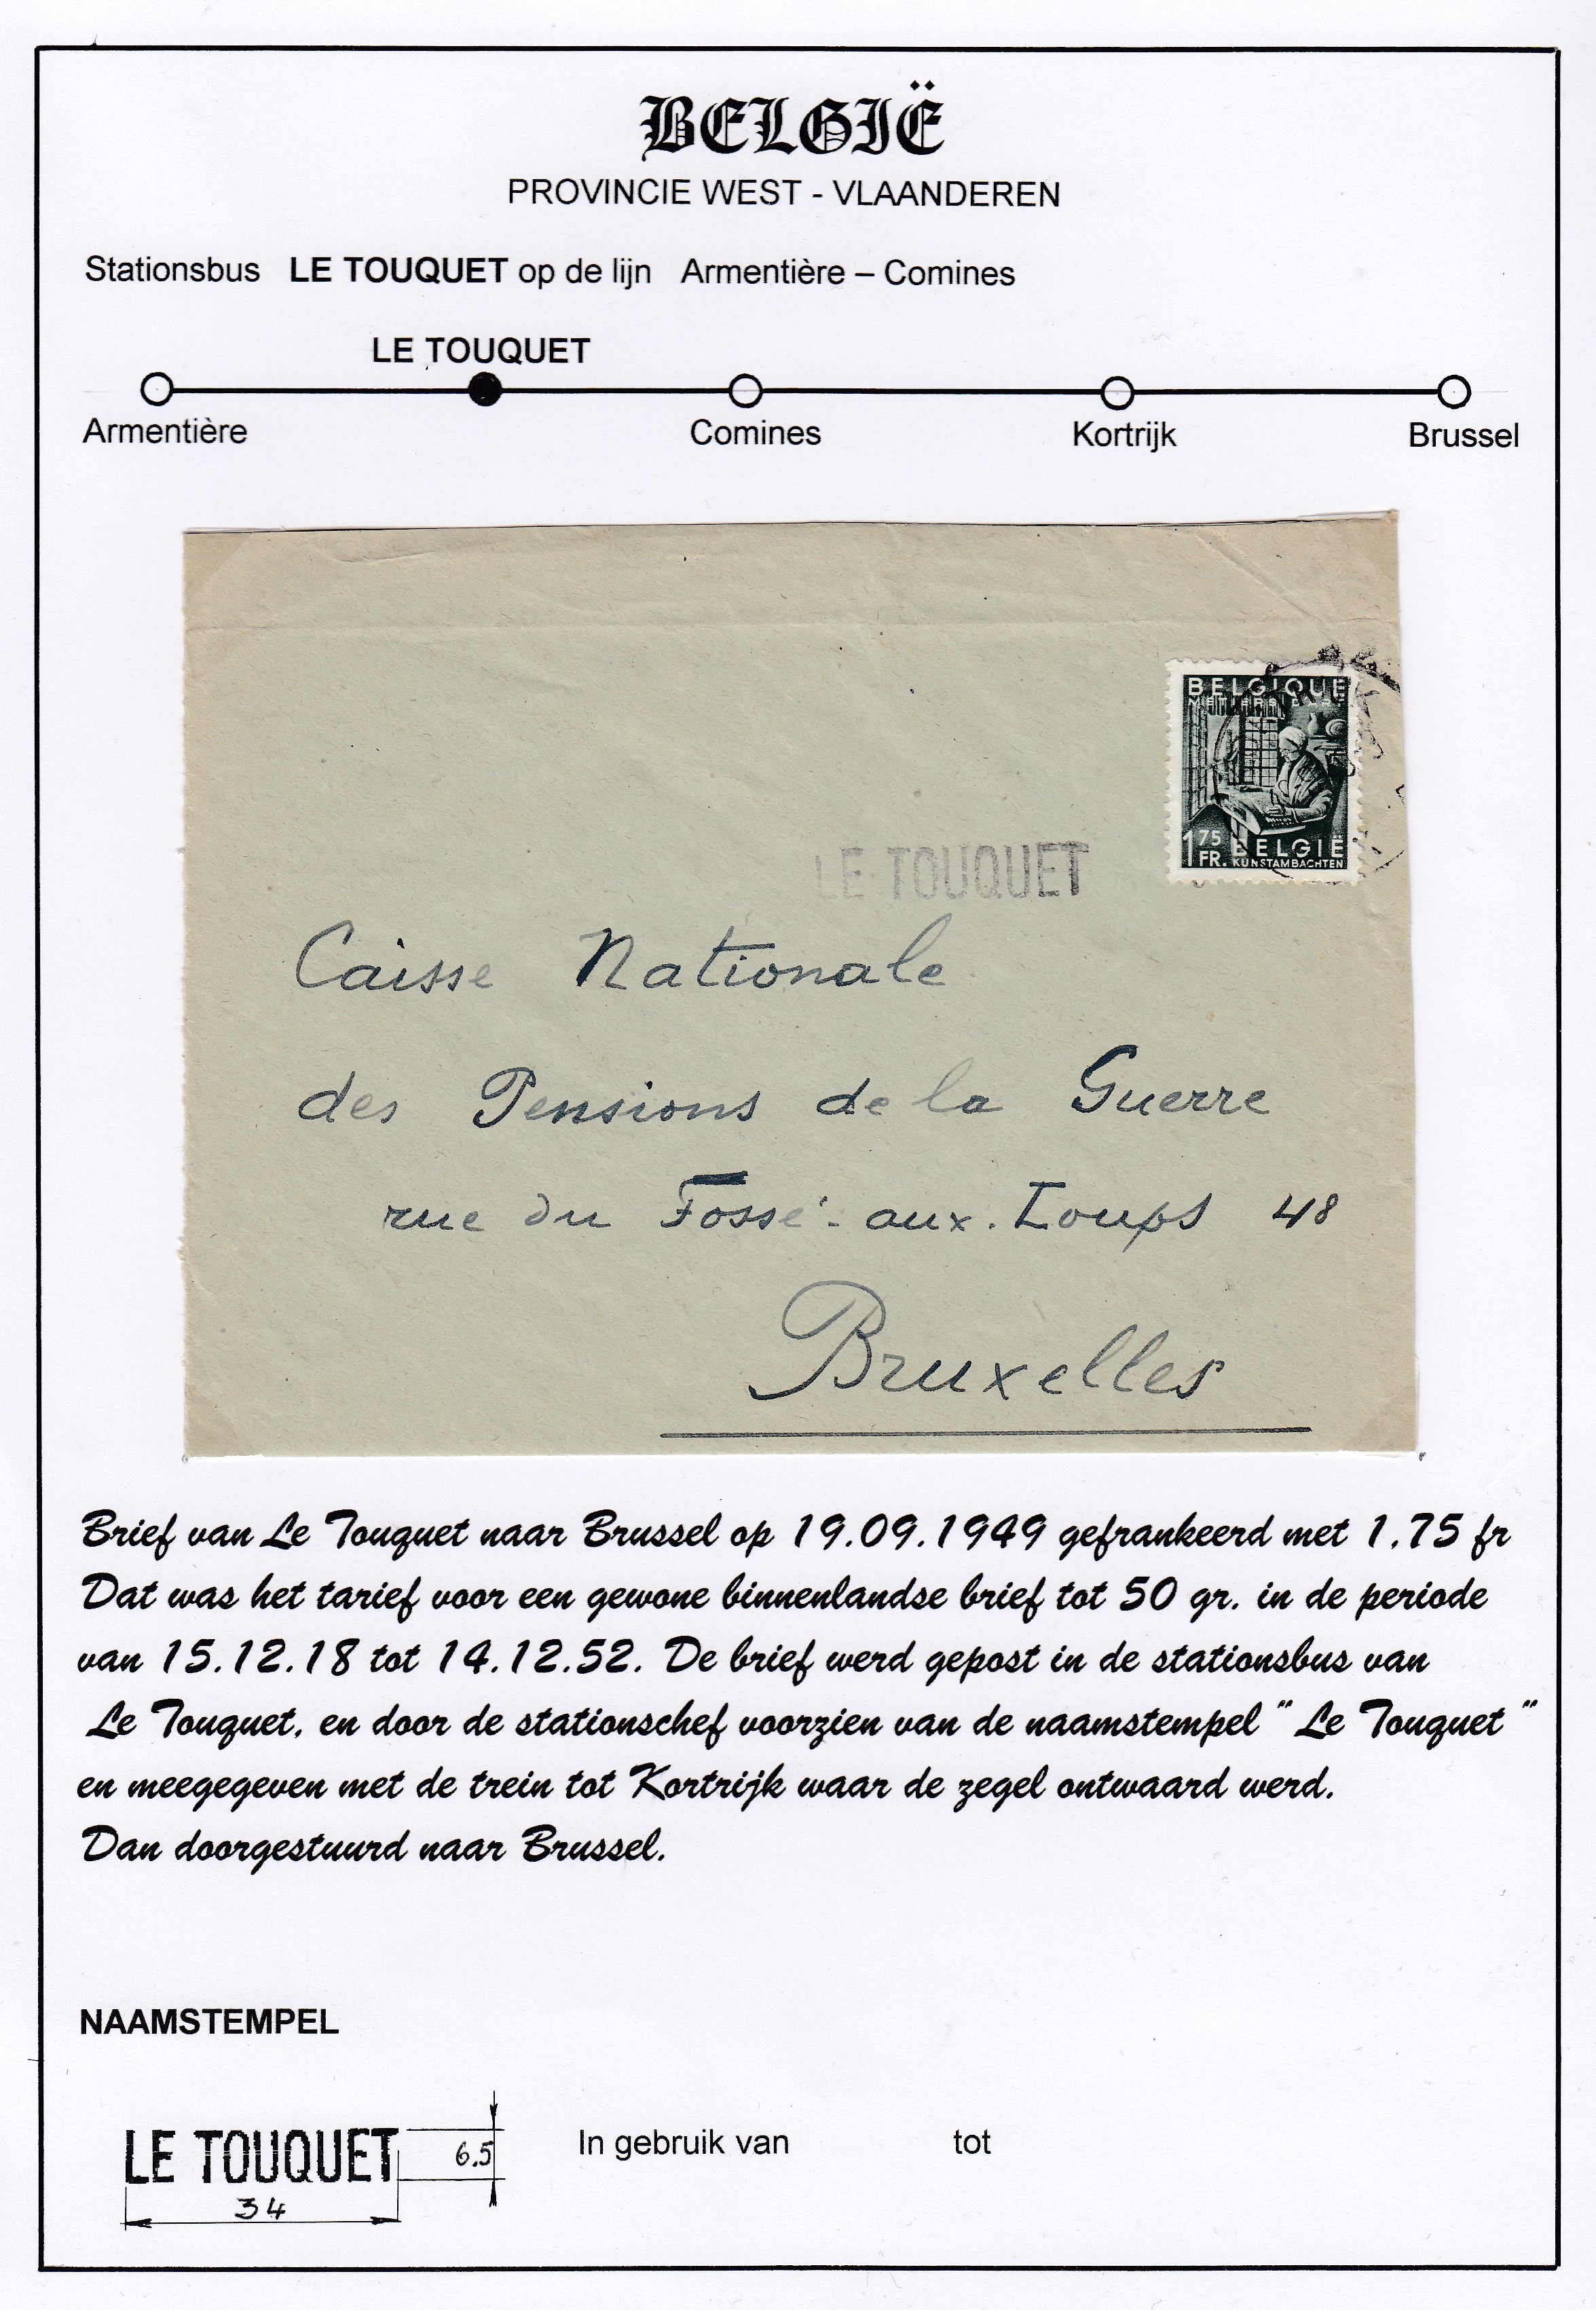 BELGIË
PROVINCIE WEST - VLAANDEREN
Stationsbus LE TOUQUET op de lijn Armentière – Comines
LE TOUQUET
Armentière Comines Kortrijk Brussel
BELGIQUE
1 75 FR. BELGIË
KUNSTAMBACHTEN
LE TOUQUET
Caisse Nationale
des Pensions de la Guerre
rue du Fossé-aux-Loups 48
Bruxelles
Brief van Le Touquet naar Brussel op 19.09.1949 gefrankeerd met 1.75 fr
Dat was het tarief voor een gewone binnenlandse brief tot 50 gr. in de periode
van 15.12.18 tot 14.12.52. De brief werd gepost in de stationsbus van
Le Touquet, en door de stationschef voorzien van de naamstempel " Le Touquet "
en meegegeven met de trein tot Kortrijk waar de zegel ontwaard werd.
Dan doorgestuurd naar Brussel.
NAAMSTEMPEL
LE TOUQUET 6.5 In gebruik van tot
34